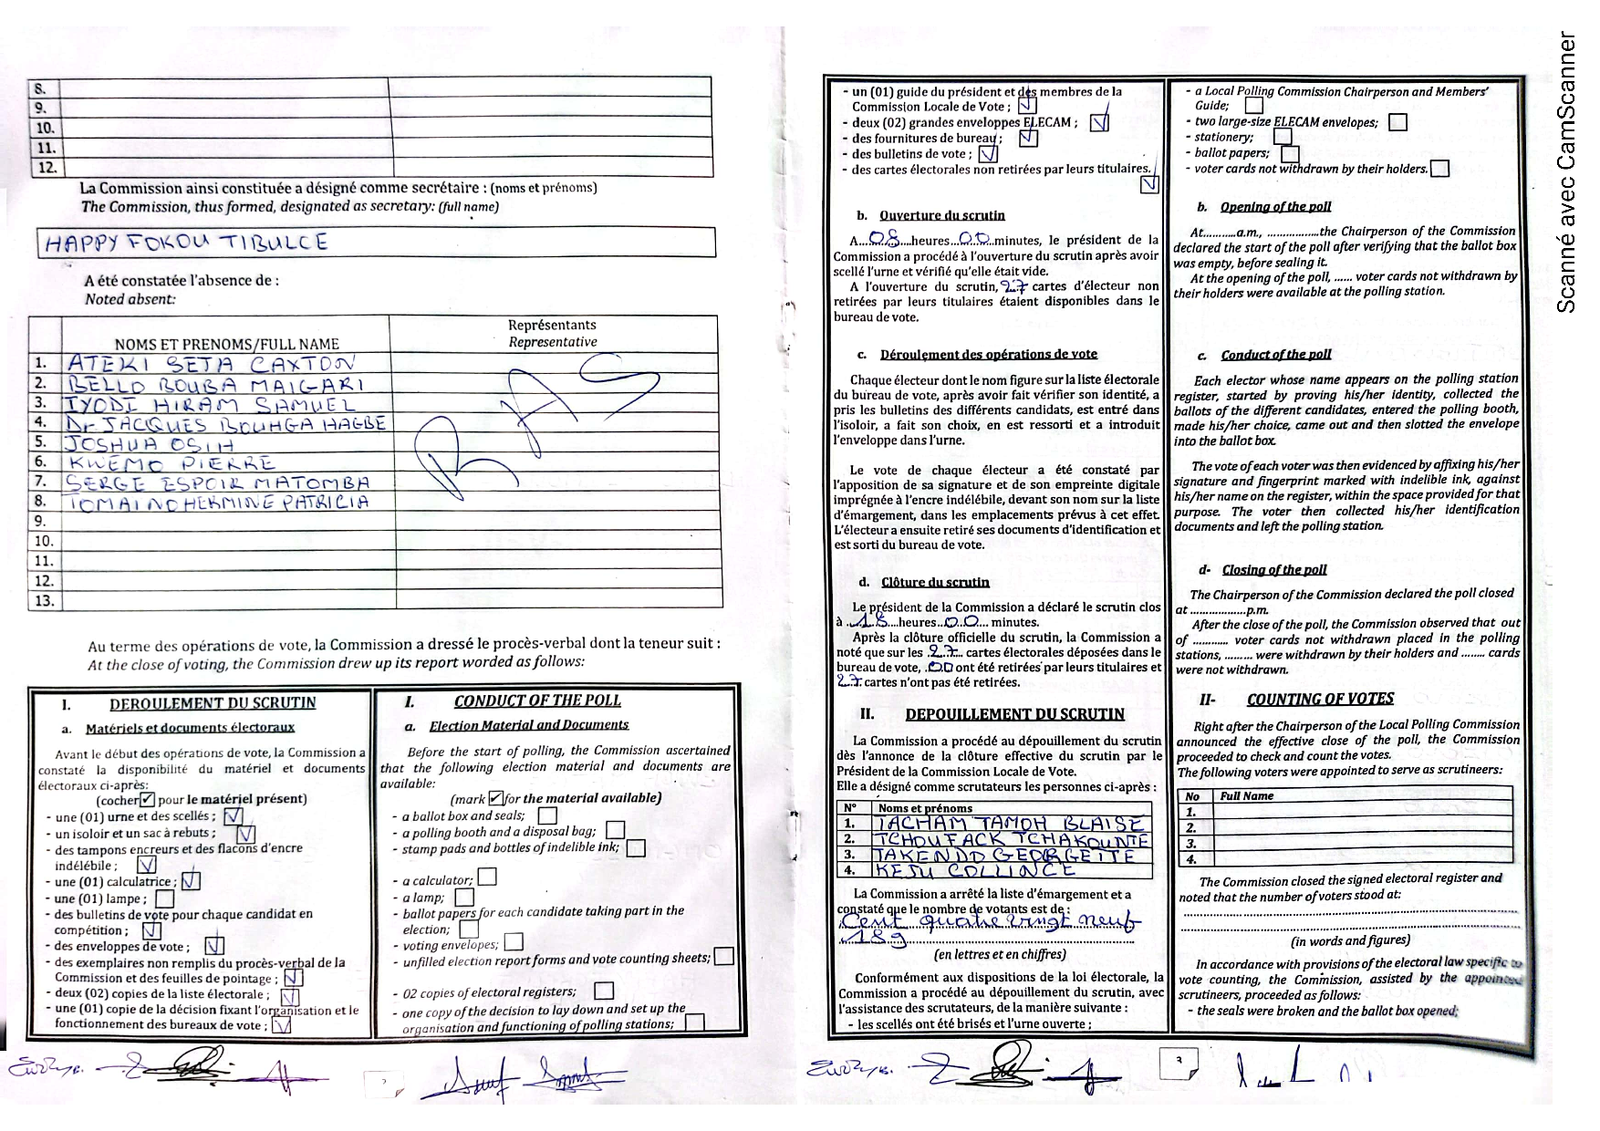 8.
9.
10.
11.
12.
La Commission ainsi constituée a désigné comme secrétaire : (noms et prénoms)
The Commission, thus formed, designated as secretary: (full name)
HAPPY FOKOU TIBULCE
A été constatée l'absence de :
Noted absent:
NOMS ET PRENOMS/FULL NAME
Représentants
Representative
1. ATEKI SETA CAXTON
2. BELLO BOUBA MAIGARI
3. IYODI HIRAM SAMUEL
4. Dr JACQUES BOUHGA HAGBE
5. JOSHUA OSIH
6. KWEMO PIERRE
7. SERGE ESPOIR MATOMBA
8. TOMAINO HERMINE PATRICIA
RAS
9.
10.
11.
12.
13.
Au terme des opérations de vote, la Commission a dressé le procès-verbal dont la teneur suit :
At the close of voting, the Commission drew up its report worded as follows:
I. DEROULEMENT DU SCRUTIN
a. Matériels et documents électoraux
Avant le début des opérations de vote, la Commission a
constaté la disponibilité du matériel et documents
électoraux ci-après:
(cocher ✓ pour le matériel présent)
- une (01) urne et des scellés ;
- un isoloir et un sac à rebuts ;
- des tampons encreurs et des flacons d'encre
indélébile ;
- une (01) calculatrice ;
- une (01) lampe ;
- des bulletins de vote pour chaque candidat en
compétition ;
- des enveloppes de vote ;
- des exemplaires non remplis du procès-verbal de la
Commission et des feuilles de pointage ;
- deux (02) copies de la liste électorale ;
- une (01) copie de la décision fixant l'organisation et le
fonctionnement des bureaux de vote ;
I. CONDUCT OF THE POLL
a. Election Material and Documents
Before the start of polling, the Commission ascertained
that the following election material and documents are
available:
(mark ✓ for the material available)
- a ballot box and seals;
- a polling booth and a disposal bag;
- stamp pads and bottles of indelible ink;
- a calculator;
- a lamp;
- ballot papers for each candidate taking part in the
election;
- voting envelopes;
- unfilled election report forms and vote counting sheets;
- 02 copies of electoral registers;
- one copy of the decision to lay down and set up the
organisation and functioning of polling stations;
- un (01) guide du président et des membres de la
Commission Locale de Vote ;
- deux (02) grandes enveloppes ELECAM ;
- des fournitures de bureau ;
- des bulletins de vote ;
- des cartes électorales non retirées par leurs titulaires.
b. Ouverture du scrutin
A...08...heures...00...minutes, le président de la
Commission a procédé à l'ouverture du scrutin après avoir
scellé l'urne et vérifié qu'elle était vide.
A l'ouverture du scrutin, 27 cartes d'électeur non
retirées par leurs titulaires étaient disponibles dans le
bureau de vote.
c. Déroulement des opérations de vote
Chaque électeur dont le nom figure sur la liste électorale
du bureau de vote, après avoir fait vérifier son identité, a
pris les bulletins des différents candidats, est entré dans
l'isoloir, a fait son choix, en est ressorti et a introduit
l'enveloppe dans l'urne.
Le vote de chaque électeur a été constaté par
l'apposition de sa signature et de son empreinte digitale
imprégnée à l'encre indélébile, devant son nom sur la liste
d'émargement, dans les emplacements prévus à cet effet.
L'électeur a ensuite retiré ses documents d'identification et
est sorti du bureau de vote.
d. Clôture du scrutin
Le président de la Commission a déclaré le scrutin clos
à ..18...heures...00... minutes.
Après la clôture officielle du scrutin, la Commission a
noté que sur les .27.. cartes électorales déposées dans le
bureau de vote, .00 ont été retirées par leurs titulaires et
27 cartes n'ont pas été retirées.
II. DEPOUILLEMENT DU SCRUTIN
La Commission a procédé au dépouillement du scrutin
dès l'annonce de la clôture effective du scrutin par le
Président de la Commission Locale de Vote.
Elle a désigné comme scrutateurs les personnes ci-après :
N° Noms et prénoms
1. TACHAM TAMOH BLAISE
2. TCHOUFACK TCHAKOUNTE
3. TAKENDO GEORGETTE
4. KEJU COLLINCE
La Commission a arrêté la liste d'émargement et a
constaté que le nombre de votants est de :
Cent quatre vingt neuf
189
(en lettres et en chiffres)
Conformément aux dispositions de la loi électorale, la
Commission a procédé au dépouillement du scrutin, avec
l'assistance des scrutateurs, de la manière suivante :
- les scellés ont été brisés et l'urne ouverte ;
- a Local Polling Commission Chairperson and Members'
Guide;
- two large-size ELECAM envelopes;
- stationery;
- ballot papers;
- voter cards not withdrawn by their holders.
b. Opening of the poll
At..........a.m., ................the Chairperson of the Commission
declared the start of the poll after verifying that the ballot box
was empty, before sealing it.
At the opening of the poll, ...... voter cards not withdrawn by
their holders were available at the polling station.
c. Conduct of the poll
Each elector whose name appears on the polling station
register, started by proving his/her identity, collected the
ballots of the different candidates, entered the polling booth,
made his/her choice, came out and then slotted the envelope
into the ballot box.
The vote of each voter was then evidenced by affixing his/her
signature and fingerprint marked with indelible ink, against
his/her name on the register, within the space provided for that
purpose. The voter then collected his/her identification
documents and left the polling station.
d- Closing of the poll
The Chairperson of the Commission declared the poll closed
at .................p.m.
After the close of the poll, the Commission observed that out
of ........... voter cards not withdrawn placed in the polling
stations, ......... were withdrawn by their holders and ........ cards
were not withdrawn.
II- COUNTING OF VOTES
Right after the Chairperson of the Local Polling Commission
announced the effective close of the poll, the Commission
proceeded to check and count the votes.
The following voters were appointed to serve as scrutineers:
No Full Name
1.
2.
3.
4.
The Commission closed the signed electoral register and
noted that the number of voters stood at:
(in words and figures)
In accordance with provisions of the electoral law specific to
vote counting, the Commission, assisted by the appointed
scrutineers, proceeded as follows:
- the seals were broken and the ballot box opened;
3
Scanné avec CamScanner